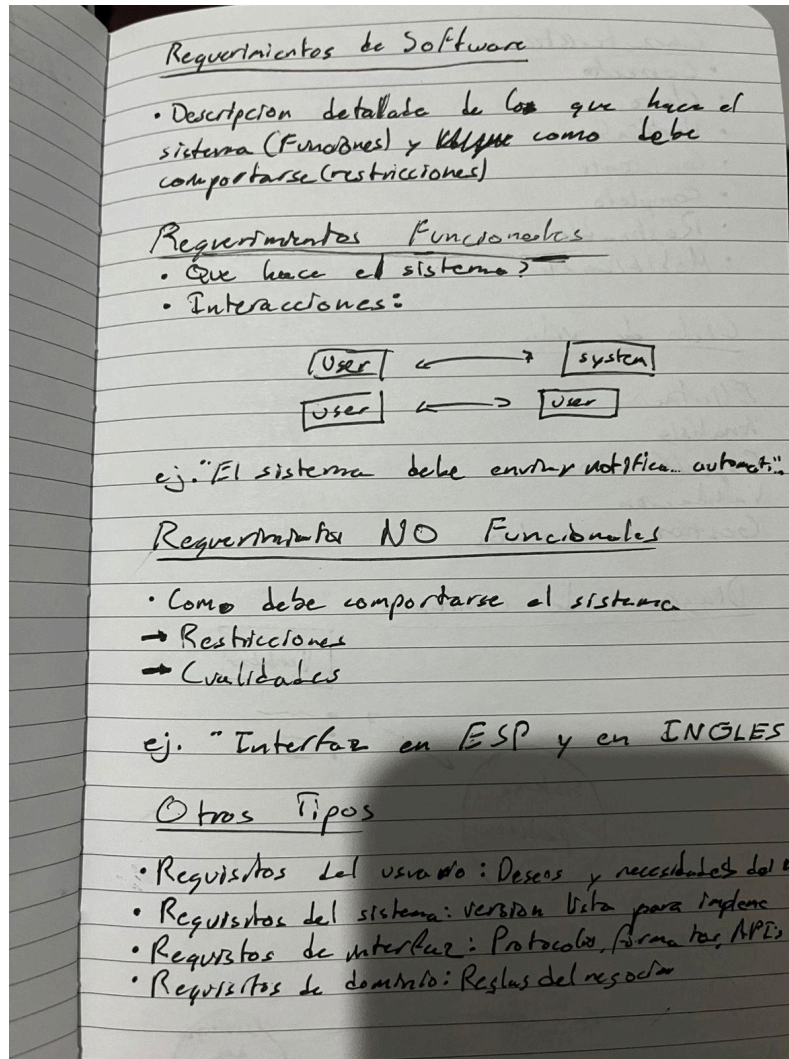 Requerimientos de Software
• Descripcion detallada de los que hace el
sistema (Funciones) y como debe
comportarse (restricciones)
Requerimientos Funcionales
• Que hace el sistema?
• Interacciones:
User ⟷ system
User ⟷ User
ej. "El sistema debe enviar notifica... automati.."
Requerimientos NO Funcionales
• Como debe comportarse el sistema
→ Restricciones
→ Cualidades
ej. "Interfaz en ESP y en INGLES
Otros Tipos
• Requisitos del usuario: Deseos y necesidades del
• Requisitos del sistema: version lista para implene
• Requistos de interfaz: Protocolos, formatos, APIs
• Requisitos de dominio: Reglas del negocio